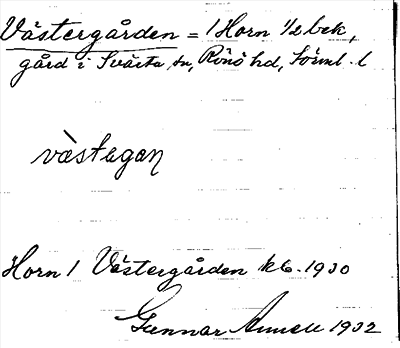 Västergården = 1 Horn 1/2 bek,
gård i Svärta sn, Rönö hd, Sörml. l
västegan
Horn 1 Västergården kb. 1930
Gunnar Annell 1932